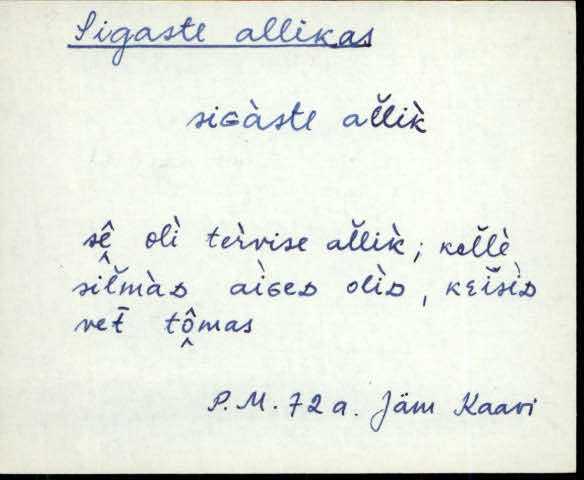 Sigaste allikas
siɢàste al̆l̆ik̀
sê̬ olì tèrvise al̆l̆ik̀; kellè
sil̆màᴅ aìɢeᴅ olìᴅ, kɛĭsìᴅ
vet̄ tô̬mas
P.M. 72 a. Jäm Kaavi